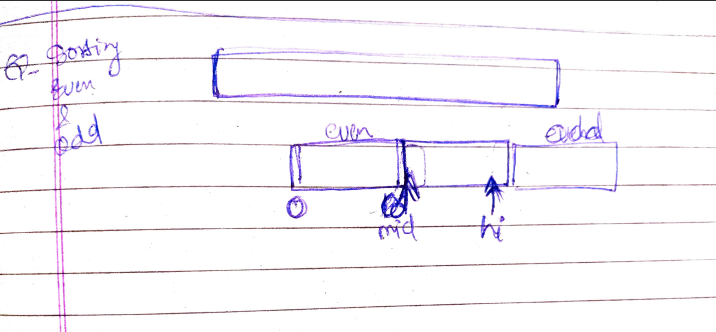 Q- Sorting
even
&
odd
even
0
mid
hi